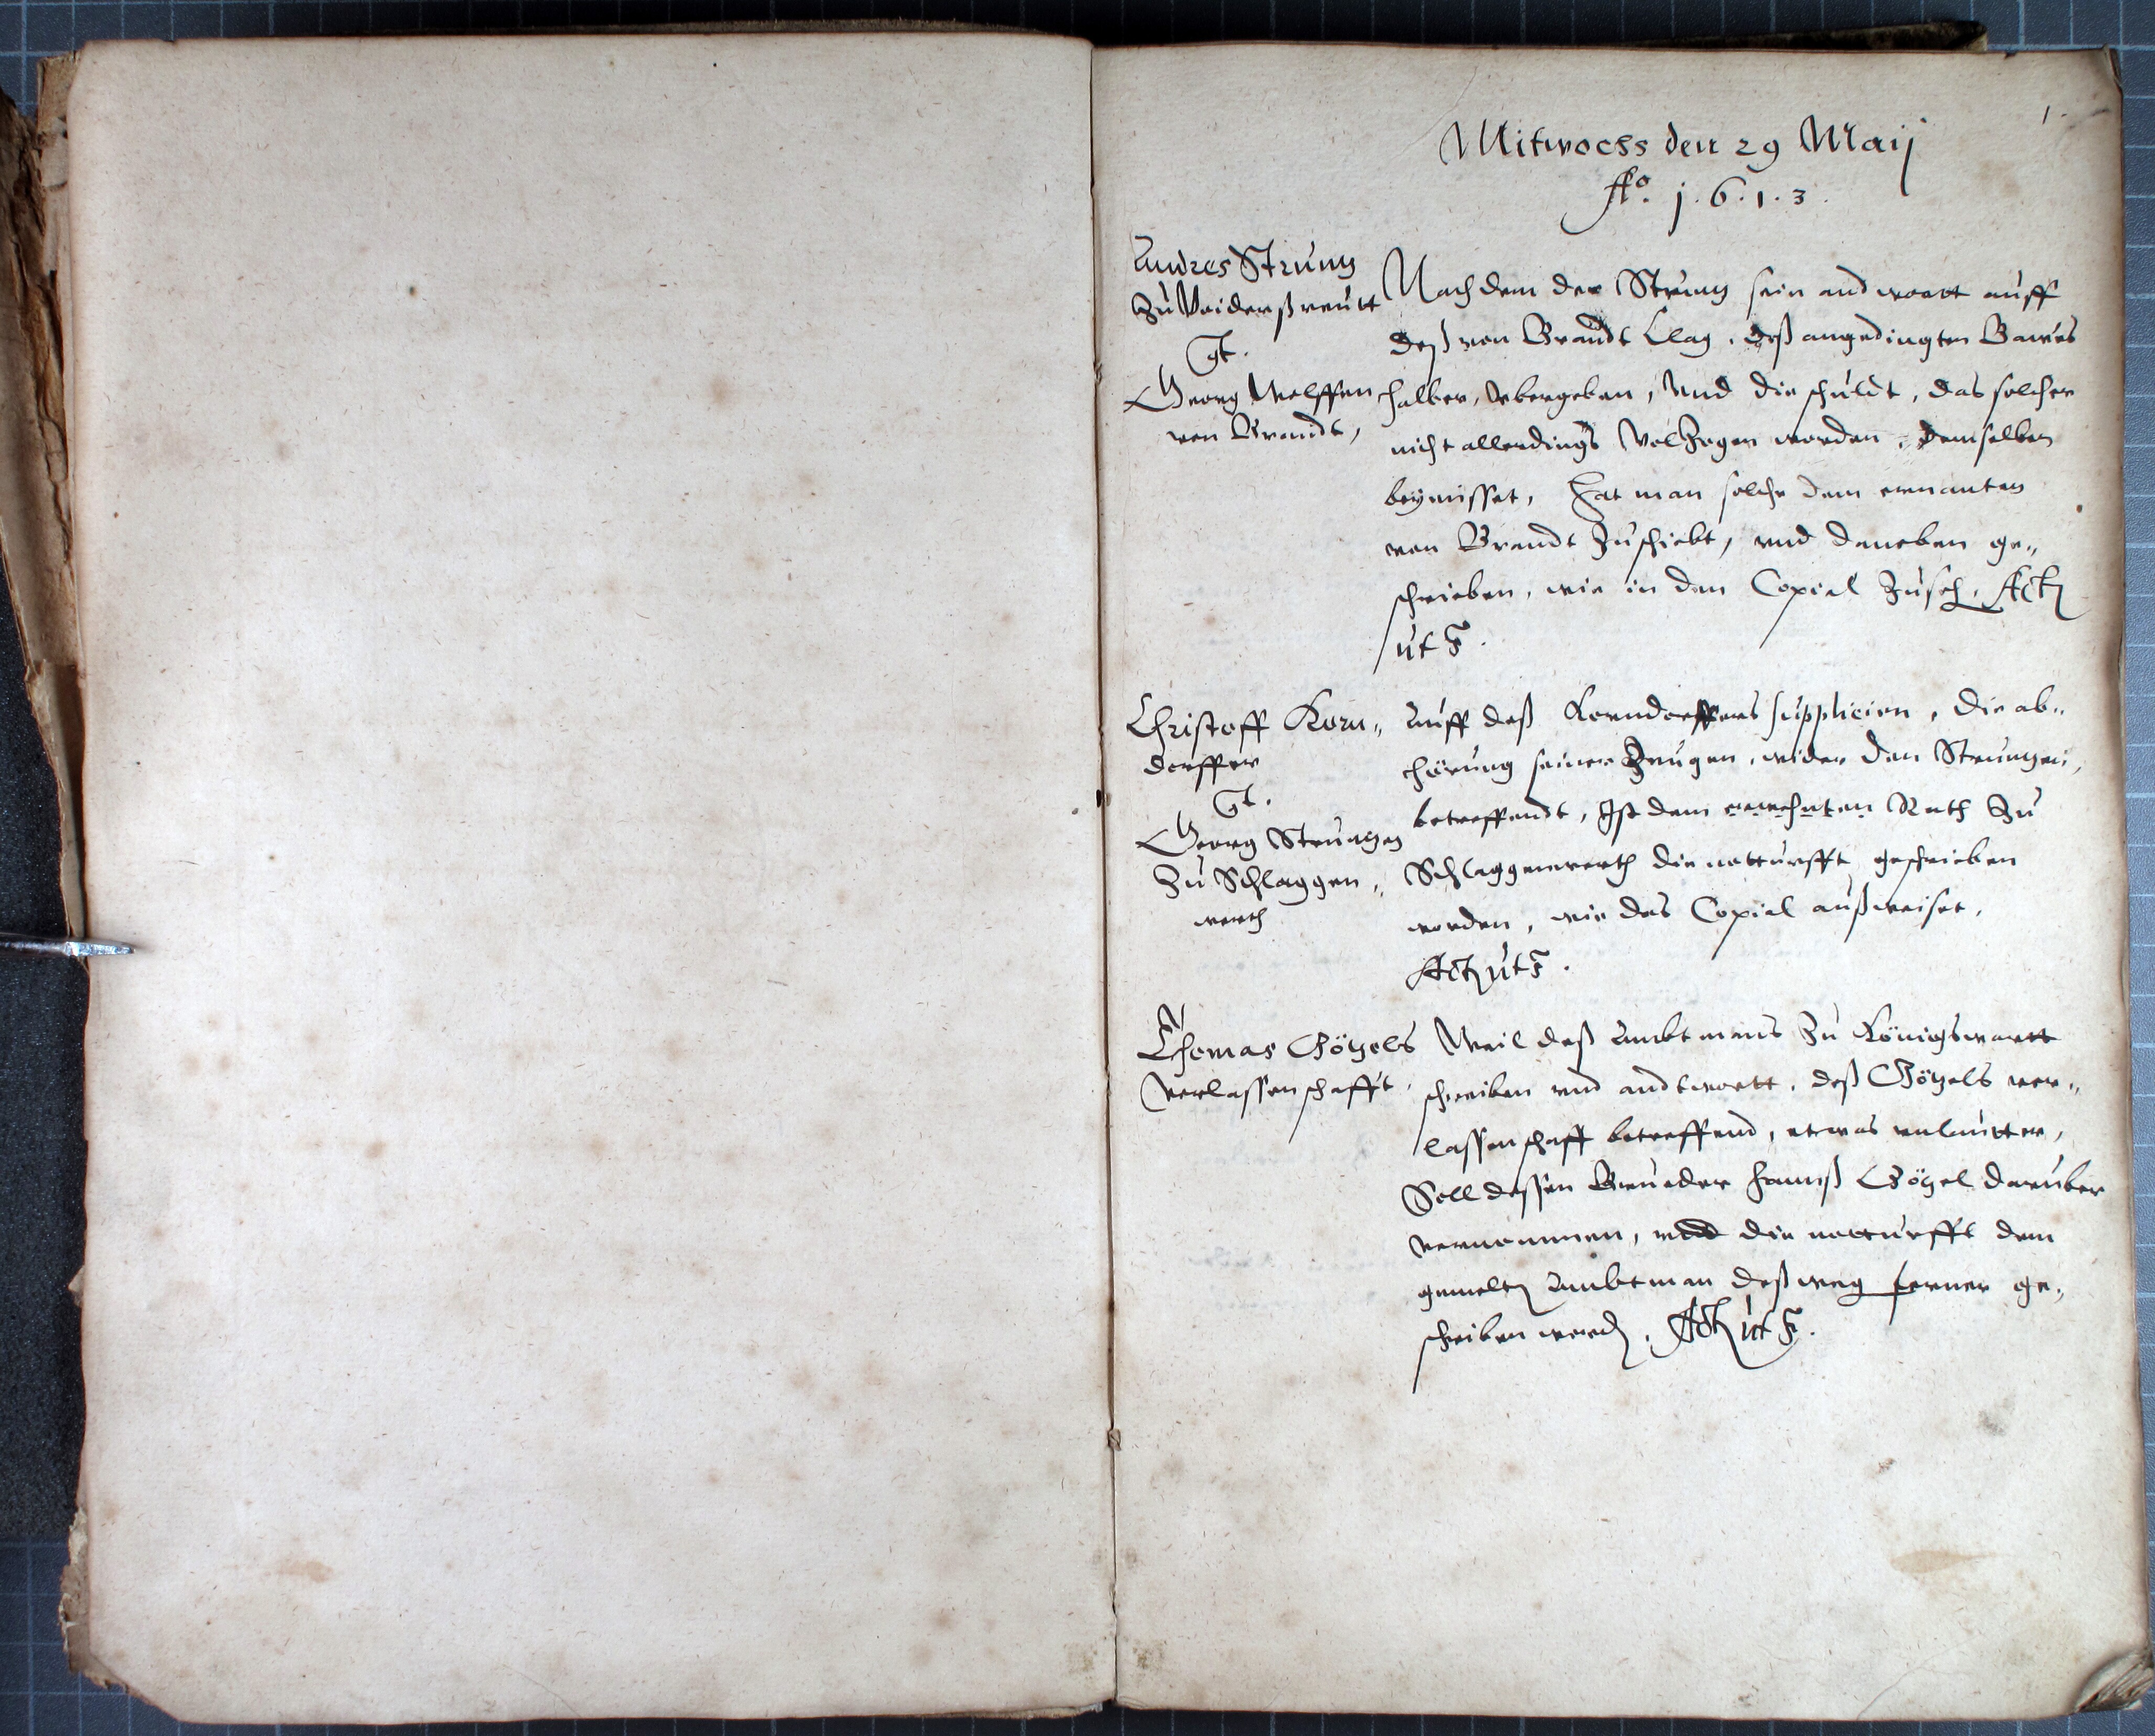 1.
Mitwochs den 29 Maij
Ao. 1.6.1.3.
Andres Strunz
Zu Weidersreutt
Ct.
Georg Wolffen
von Brandt,
Nach dem der Strunz sein andwortt auff
deß von Brandt Clag, deß angedingten Bawes
halber, vbergeben, Vnd die schuldt, das solcher
nicht allerdings Volzogen worden, demselben
beymisset, Hat man solche dem ernanten
von Brandt Zuschickt, vnd daneben ge„
schrieben, wie in den Copial Zu seh. Actũ
ut s̃.
Christoff Korn„
dorffer
Ct.
Georg Strunzen
Zu Schlaggen„
werth
Auff deß Korndorffers supplicien, die ab„
hörung seiner Zeugen, wider den Strunzen,
betreffendt, Ist dem Rath Zu
Schlaggenwerth die notturfft geschrieben
worden, wie das Copial außweiset,
Actũ ut s̃.
Thomas Götzels
verlassenschafft.
Weil deß Ambtmans Zu Königswartt
schreiben vnd andtwortt, deß Götzels ver„
lassenschafft betreffend, etwas vnlautter,
Soll dessen Brueder Hannß Götzel darüber
vernommen, vnd die notturfft dem
gemelten Ambtman deßweg ferner ge„
schrieben werden. Actũ ut s̃.